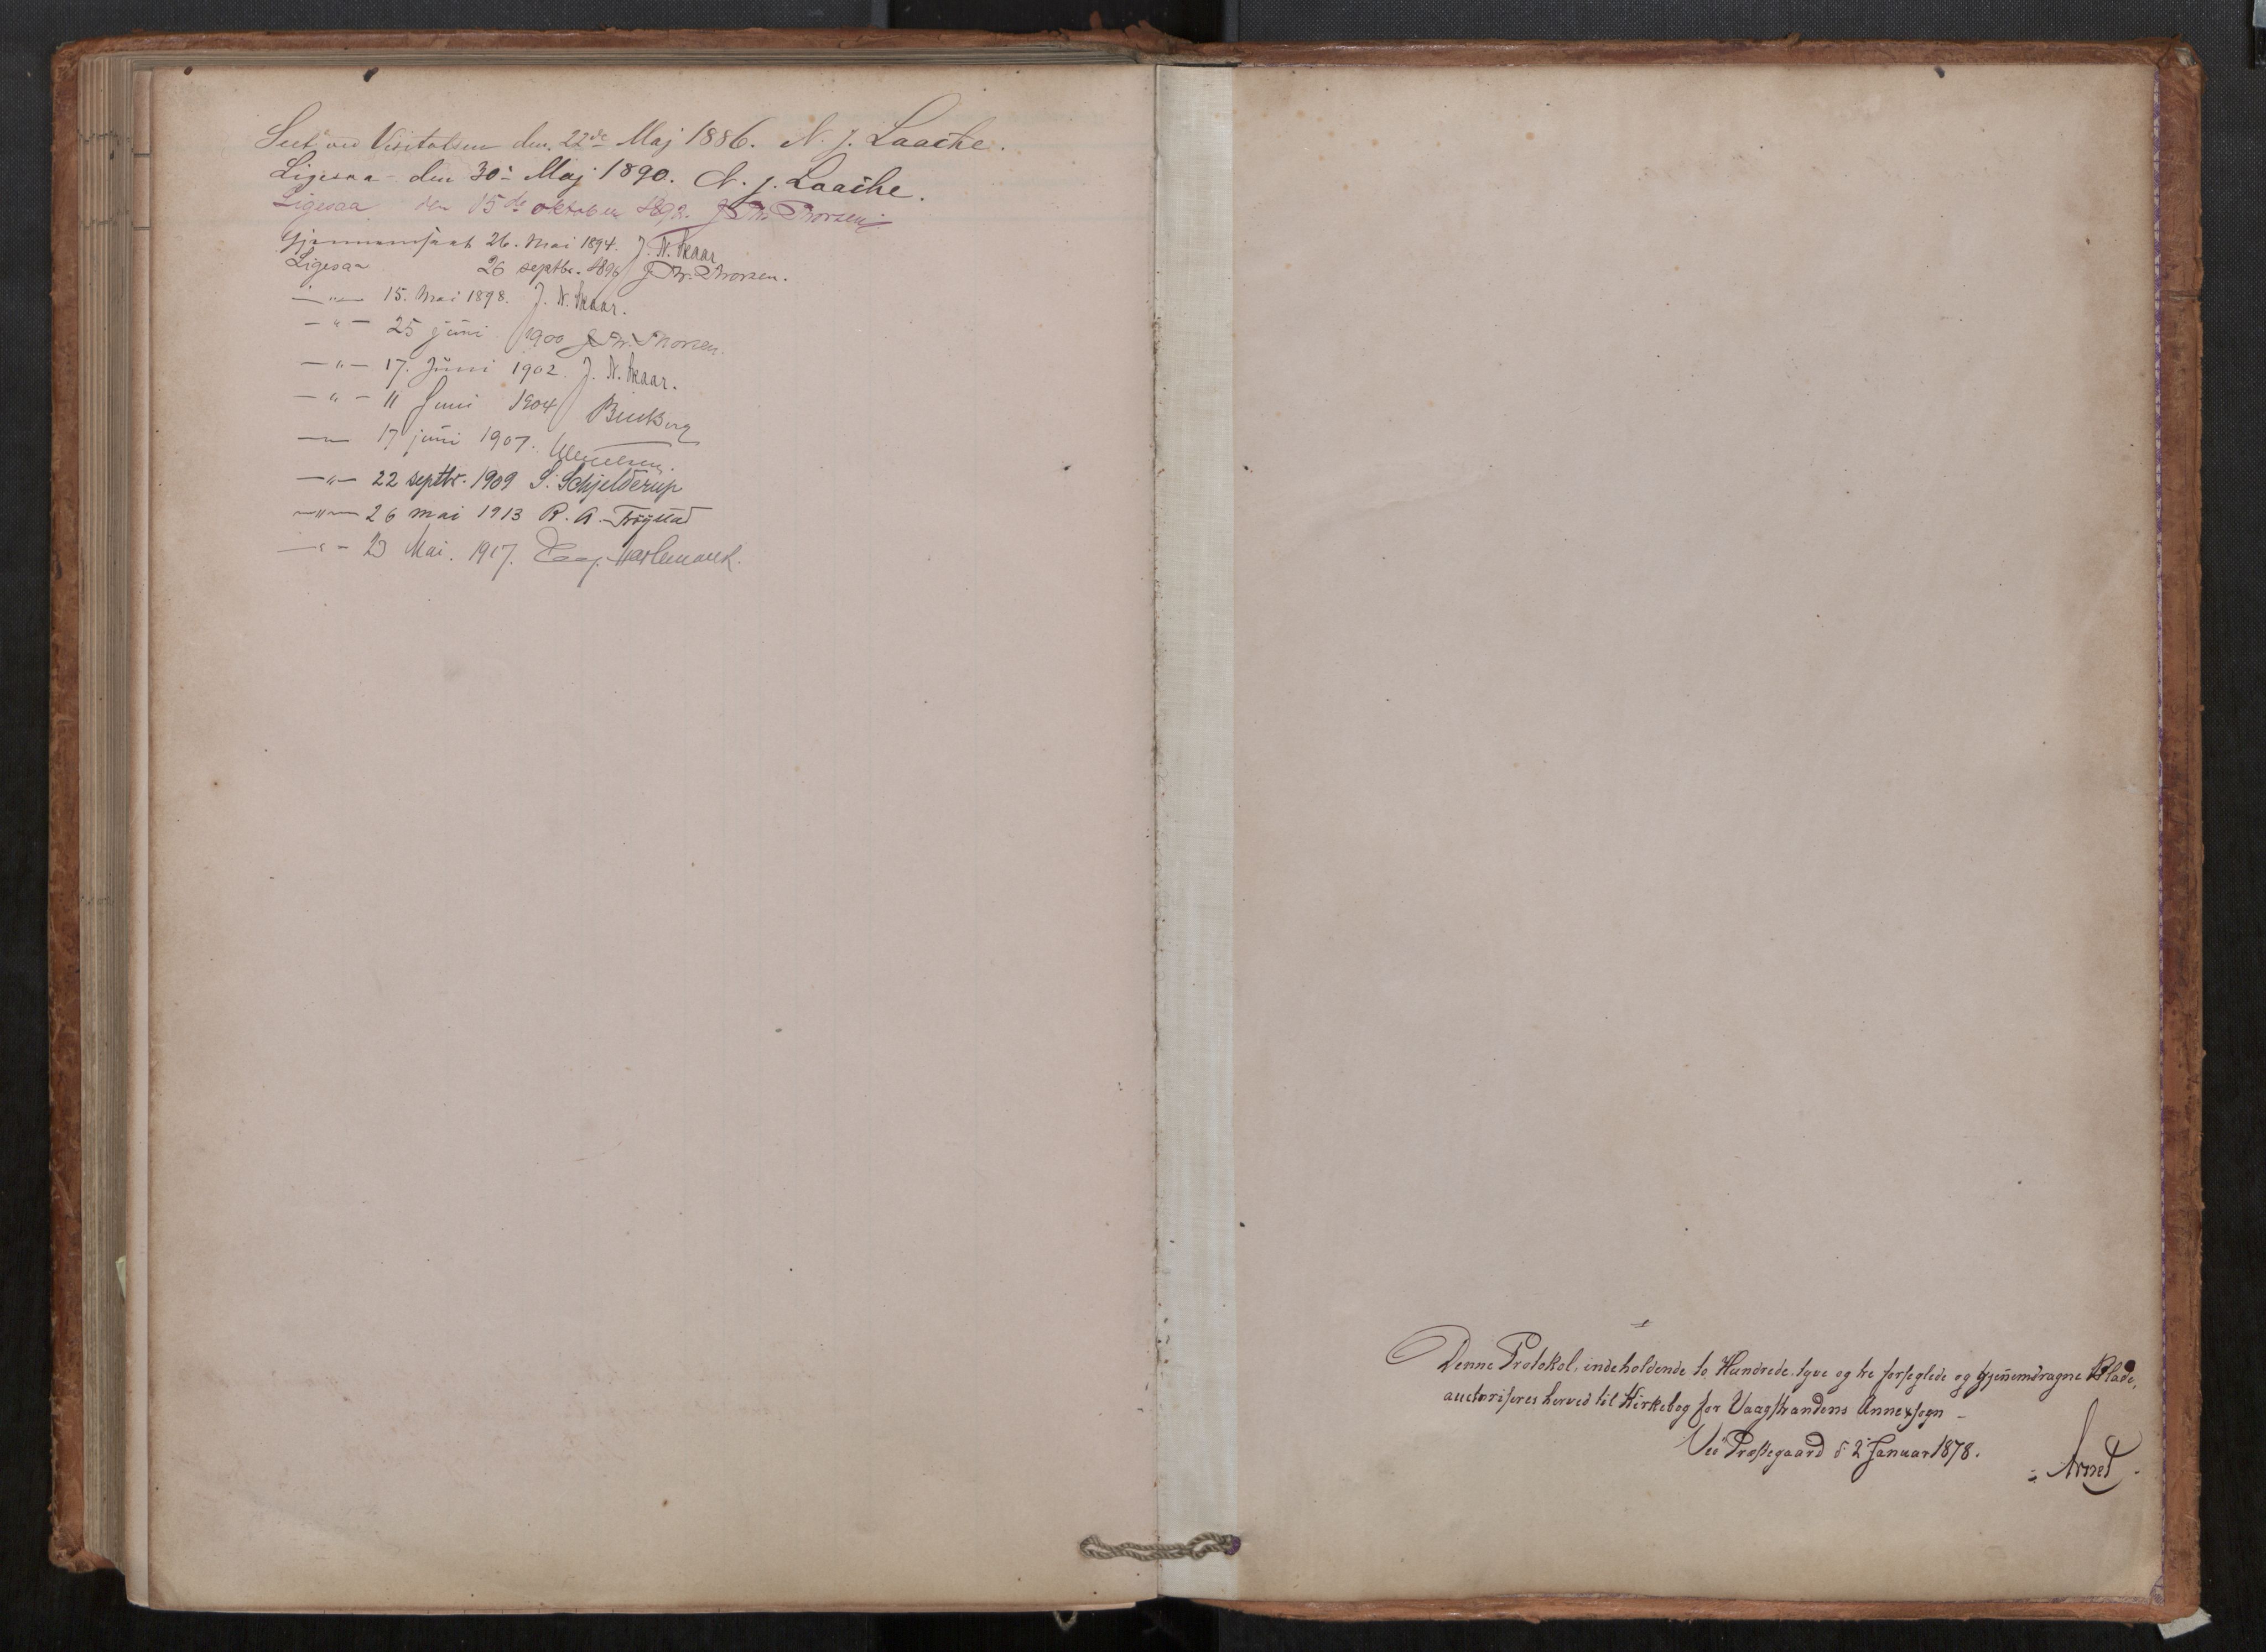 Seet ved Visitatsen den 22de Maj 1886. N. J. Laache.
Ligesaa den 30: Maj 1890. N. J. Laache.
Ligesaa den 15de oktober 1892. J. Thorsen.
Gjennemseet 26. Mai 1894. J. N. Skaar
Ligesaa 26 septbr. 1896 J Thorsen.
—"— 15. Mai 1898. J. N. Skaar.
—"— 25 juni 1900 J Thorsen.
—"— 17. Juni 1902. J. N. Skaar.
—"— 11 Juni 1904
—"— 17 juni 1907.
—"— 22 septbr. 1909 S. Schjelderup
—"— 26 mai 1913 R. A. Trøgstad
—"— 23 Mai. 1917.
Denne Protokol, indeholdende to Hundrede tyve og tre forseglede og gjennemdragne Blade,
auctoriseres herved til Kirkebog for Vaagstrandens Annexsogn –
Veø Præstegaard d. 2 Januar 1878.